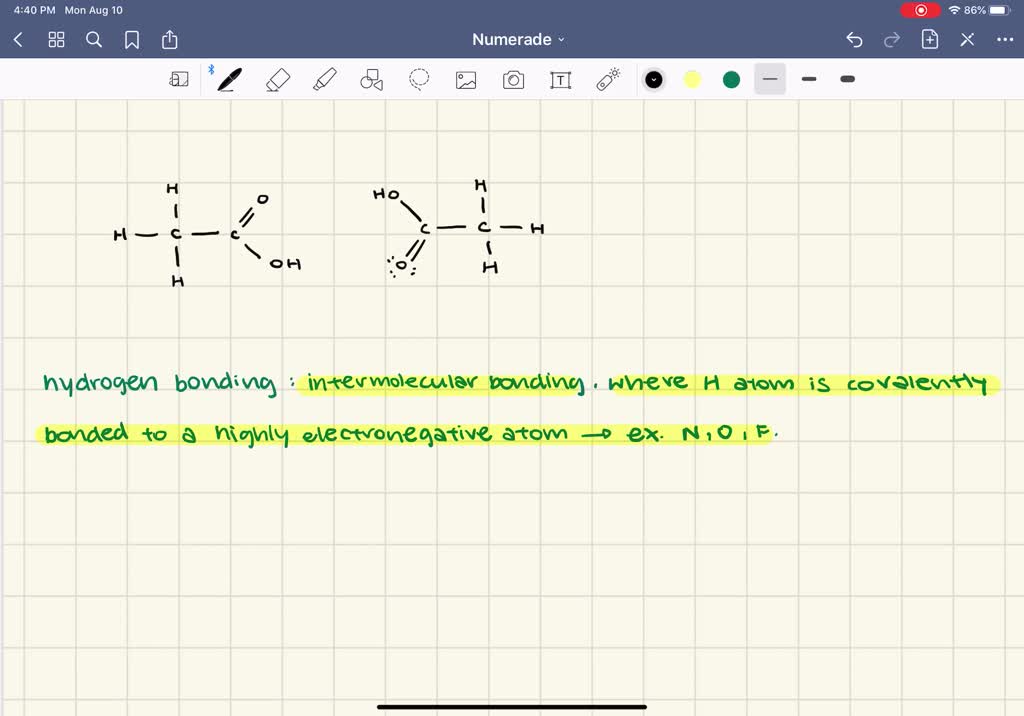 4:40 PM Mon Aug 10
86%
Numerade
T
H
O
H C C
OH
H
HO
H
C C H
O
H
hydrogen bonding : intermolecular bonding. where H atom is covalently
bonded to a highly electronegative atom → ex. N, O, F.